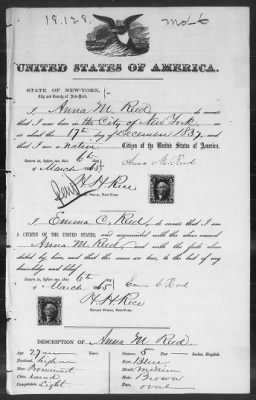 18.128.
UNITED STATES OF AMERICA.
STATE OF NEW-YORK,
City and County of New-York,
I Anna M. Reid do swear
that I was born in the City of New York, on
or about the 17th day of December 1837,
and that I am a native Citizen of the United States of America.
Sworn to, before me, this 6th
of March 1865
Anna M. Reid
H. H. Rice
Notary Public, New-York.
I Emma C. Reid, do swear that I am
A CITIZEN OF THE UNITED STATES, and acquainted with the above named
Anna M. Reid, and with the facts above
stated by him, and that the same are true, to the best of my
knowledge and belief.
Sworn to, before me, this 6th
of March 1865
Emma C Reid
H. H. Rice
Notary Public, New-York.
DESCRIPTION OF Anna M. Reid.
Age: 27 years
Stature: 5 Feet Inches, English.
Forehead: high
Eyes: Blue
Nose: Prominent
Mouth: Medium
Chin: round
Hair: Brown
Complexion: Light
Face: oval